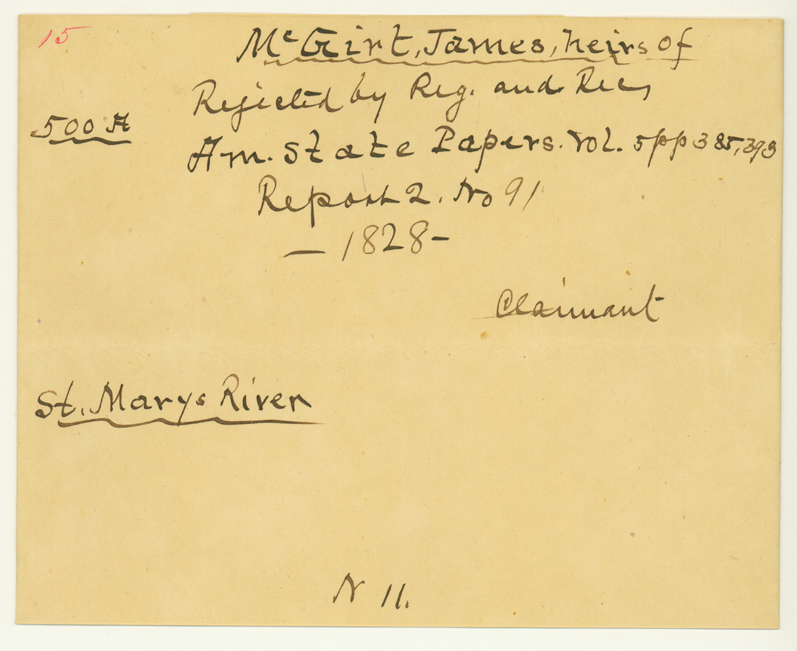 15
McGirt, James, heirs of
Rejected by Reg. and Rec,
500 A
Am. State Papers. Vol. 5 pp 385, 393
Report 2. No 91
— 1828 –
Claimant
St. Marys River
N 11.